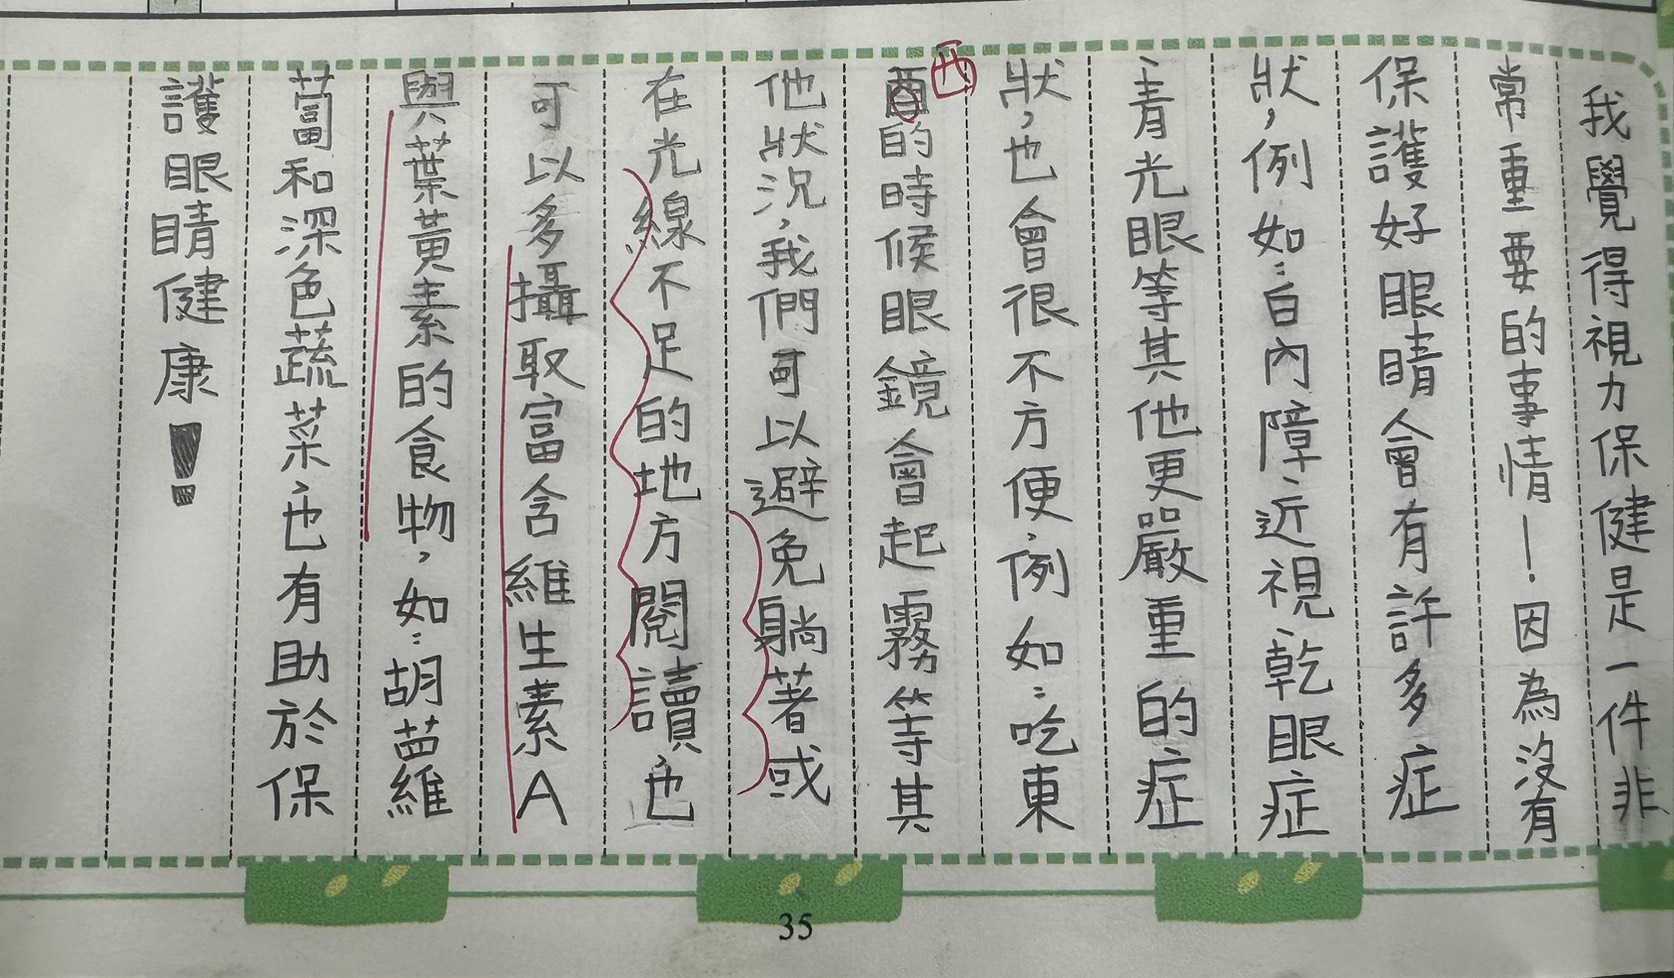 我覺得視力保健是一件非
常重要的事情！因為沒有
保護好眼睛會有許多症
狀，例如：白內障、近視、乾眼症
、青光眼等其他更嚴重的症
狀，也會很不方便，例如：吃東
酉的時候眼鏡會起霧等其
西
他狀況，我們可以避免躺著或
在光線不足的地方閱讀，也
可以多攝取富含維生素A
與葉黃素的食物，如：胡蘿
蔔和深色蔬菜，也有助於保
護眼睛健康！
35